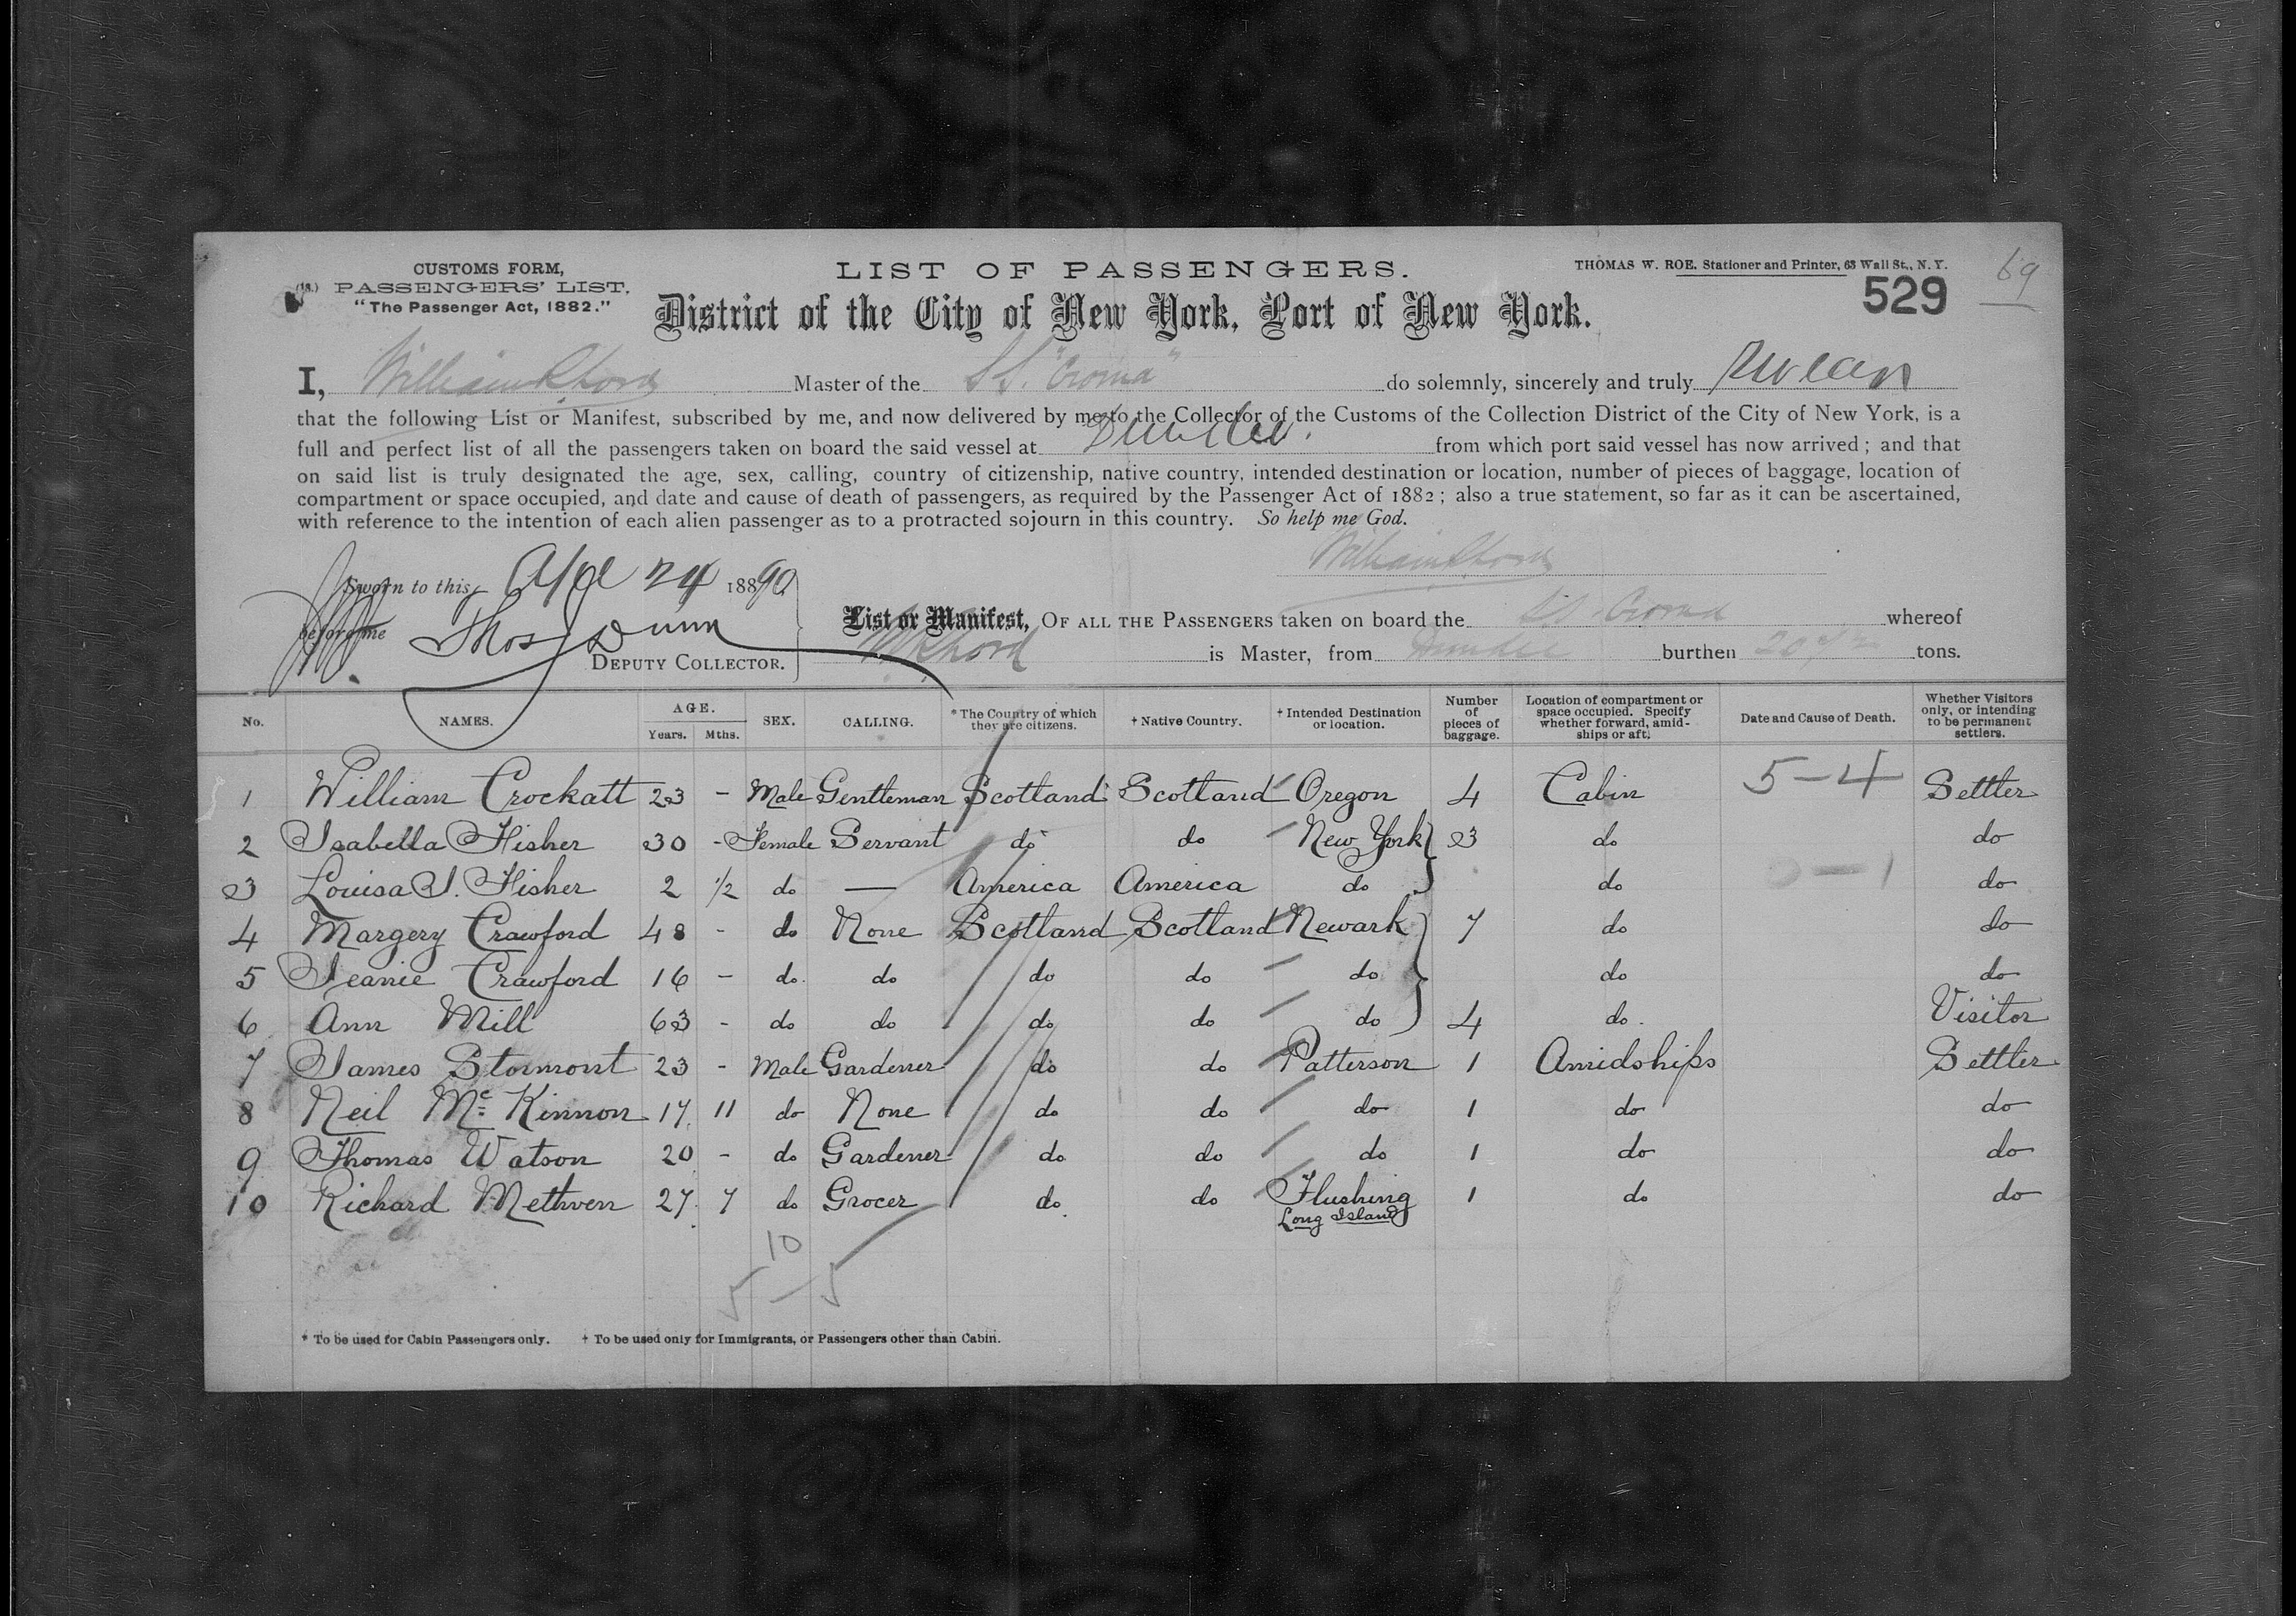 CUSTOMS FORM,
(18.) PASSENGERS' LIST.
"The Passenger Act, 1882."
LIST OF PASSENGERS.
THOMAS W. ROE. Stationer and Printer, 63 Wall St., N. Y.
69
529
District of the City of New York, Port of New York.
I, William Master of the S.S. "Croma" do solemnly, sincerely and truly swear
that the following List or Manifest, subscribed by me, and now delivered by me to the Collector of the Customs of the Collection District of the City of New York, is a
full and perfect list of all the passengers taken on board the said vessel at Dundee. from which port said vessel has now arrived; and that
on said list is truly designated the age, sex, calling, country of citizenship, native country, intended destination or location, number of pieces of baggage, location of
compartment or space occupied, and date and cause of death of passengers, as required by the Passenger Act of 1882; also a true statement, so far as it can be ascertained,
with reference to the intention of each alien passenger as to a protracted sojourn in this country. So help me God.
William
Sworn to this Apl 24 1890
before me Thos Dunn
DEPUTY COLLECTOR.
List or Manifest, OF ALL THE PASSENGERS taken on board the SS. Croma whereof
is Master, from Dundee burthen tons.
No. NAMES. AGE. Years. Mths. SEX. CALLING. * The Country of which they are citizens. † Native Country. † Intended Destination or location. Number of pieces of baggage. Location of compartment or space occupied. Specify whether forward, amidships or aft. Date and Cause of Death. Whether Visitors only, or intending to be permanent settlers.
1 William Crockatt 23 - Male Gentleman Scotland Scotland Oregon 4 Cabin 5-4 Settler
2 Isabella Fisher 30 - Female Servant do do New York 3 do do
3 Louisa J. Fisher 2 1/2 do — America America do do do
4 Margery Crawford 48 - do None Scotland Scotland Newark 7 do do
5 Jeanie Crawford 16 - do. do do do do do do
6 Ann Mill 63 - do do do do do 4 do. Visitor
7 James Stormont 23 - Male Gardener do do Patterson 1 Amidships Settler
8 Neil Mc Kinnon 17 11 do None do do do 1 do do
9 Thomas Watson 20 - do Gardener do do do 1 do do
10 Richard Methven 27 7 do Grocer do do Flushing 1 do do
Long Island
10
5-5
* To be used for Cabin Passengers only. † To be used only for Immigrants, or Passengers other than Cabin.